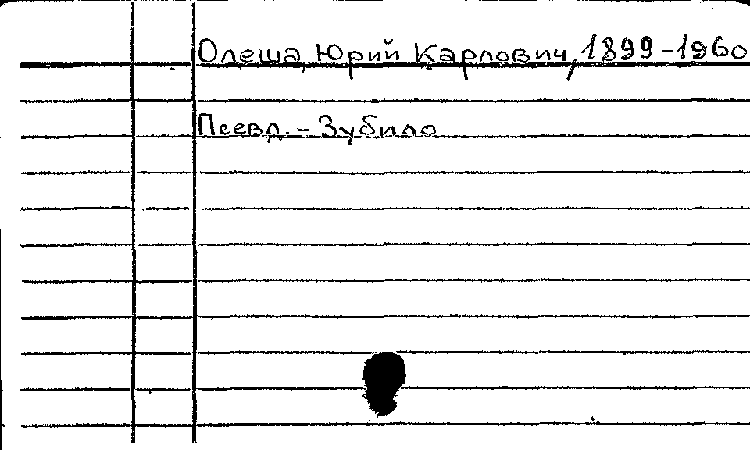 Олеша, Юрий Карлович, 1899-1960
Псевд. - Зубило